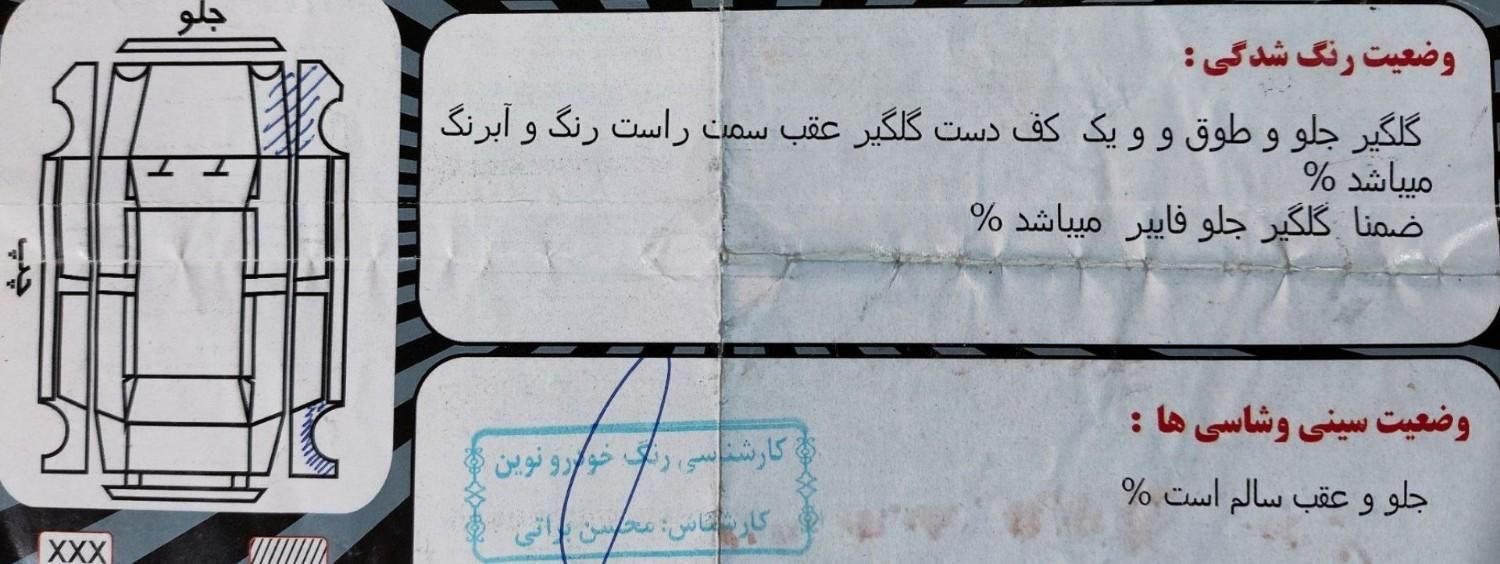 جلو
چپ
XXX
وضعیت رنگ شدگی :
گلگیر جلو و طوق و و یک کف دست گلگیر عقب سمت راست رنگ و آبرنگ
میباشد %
ضمنا گلگیر جلو فایبر میباشد %
وضعیت سینی وشاسی ها :
جلو و عقب سالم است %
کارشناسی رنگ خودرو نوین
کارشناس: محسن براتی